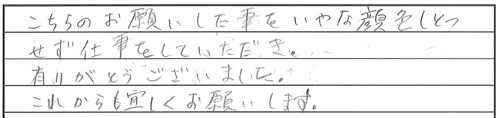 こちらのお願いした事をいやな顔色しとつ
せず仕事をしていただき。
有りがとうございました。
これからも宜しくお願いします。